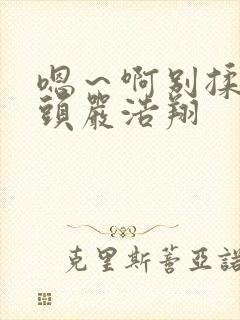 嗯～啊别揉
頭嚴浩翔
克里斯蒂亞諾